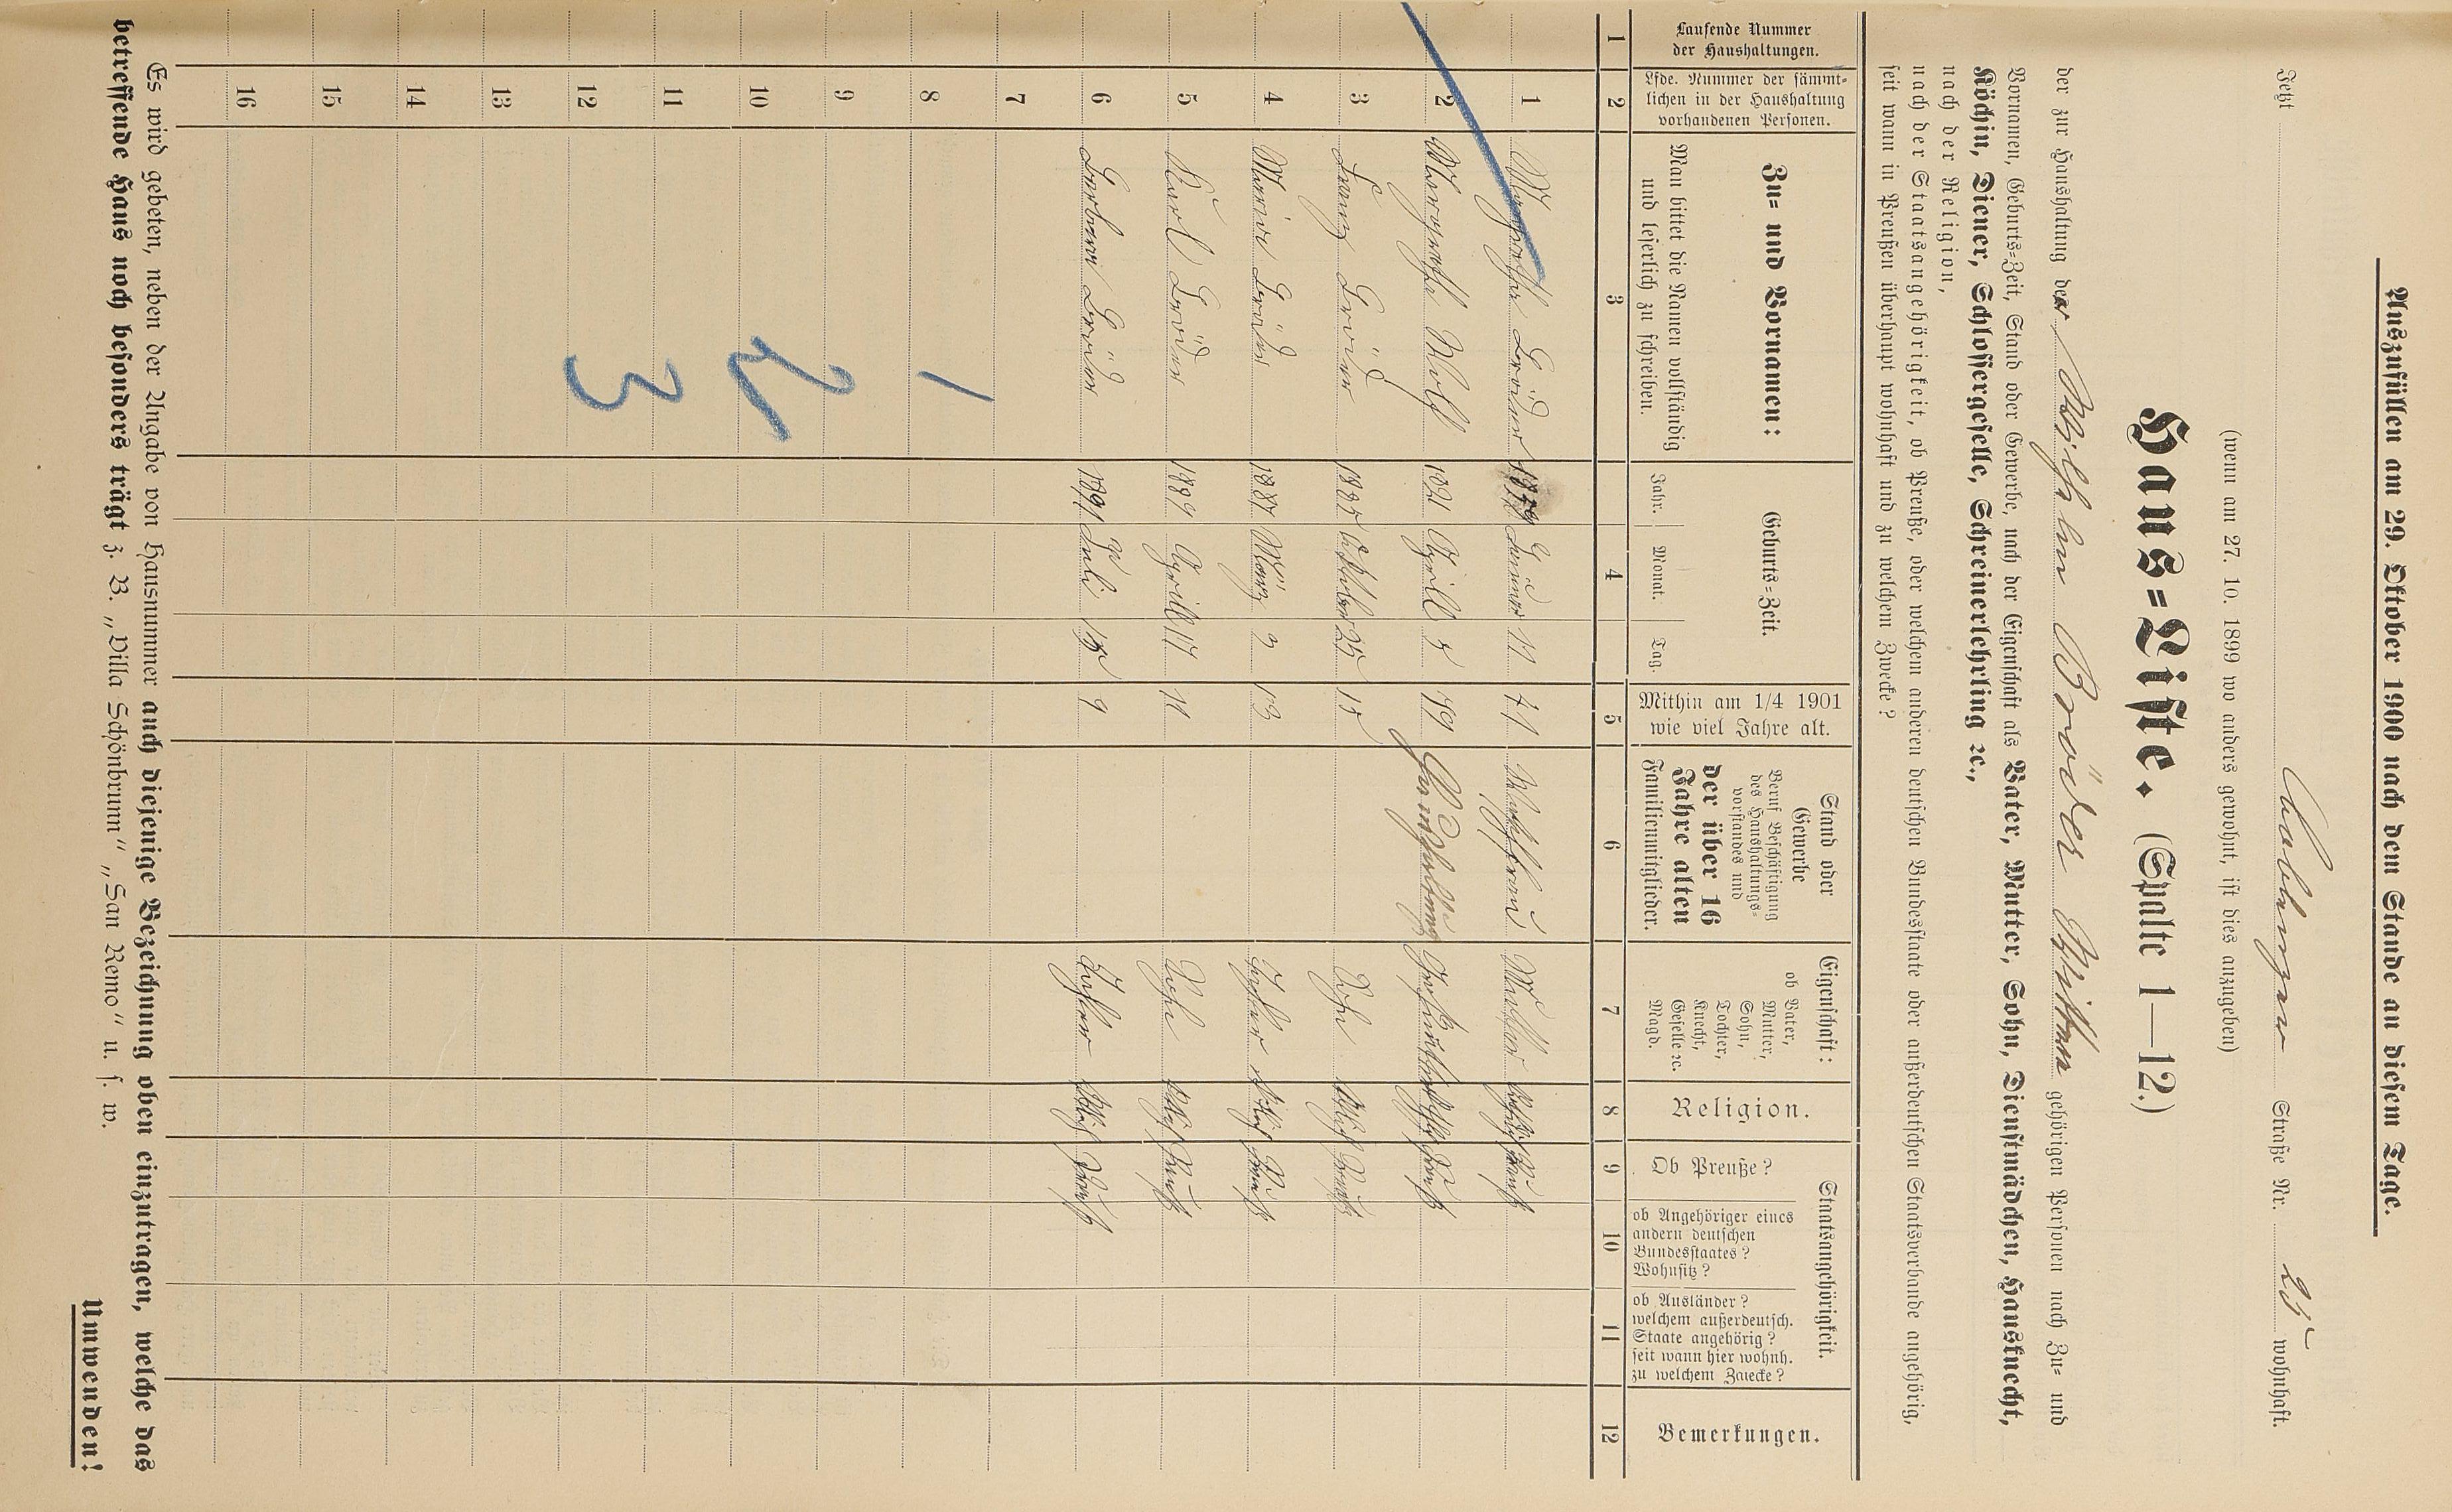 Auszufüllen am 29. Oktober 1900 nach dem Stande an diesem Tage.
Jetzt Coblenzer Straße Nr. 25 wohnhaft.
(wenn am 27. 10. 1899 wo anders gewohnt, ist dies anzugeben)
Haus=Liste. (Spalte 1—12.)
der zur Haushaltung der Wilhelm Bröder Wittwe gehörigen Personen nach Zu= und
Vornamen, Geburts=Zeit, Stand oder Gewerbe, nach der Eigenschaft als Vater, Mutter, Sohn, Dienstmädchen, Hausknecht,
Köchin, Diener, Schlossergeselle, Schreinerlehrling ec.,
nach der Religion,
nach der Staatsangehörigkeit, ob Preuße, oder welchem anderen deutschen Bundesstaate oder außerdeutschen Staatsverbande angehörig,
seit wann in Preußen überhaupt wohnhaft und zu welchem Zwecke?
Laufende Nummer der Haushaltungen.
Lfde. Nummer der sämmt=lichen in der Haushaltung vorhandenen Personen.
Zu= und Vornamen:
Man bittet die Namen vollständig und leserlich zu schreiben.
Geburts=Zeit.
Jahr. Monat. Tag.
Mithin am 1/4 1901 wie viel Jahre alt.
Stand oder Gewerbe
Beruf Beschäftigung des Haushaltungs=vorstandes und
der über 16 Jahre alten Familienmitglieder.
Eigenschaft:
ob Vater, Mutter, Sohn, Tochter, Knecht, Geselle ec. Magd.
Religion.
Staatsangehörigkeit.
Ob Preuße?
ob Angehöriger eines andern deutschen Bundesstaates? Wohnsitz?
ob Ausländer? welchem außerdeutsch. Staate angehörig? seit wann hier wohnh. zu welchem Zwecke?
Bemerkungen.
1 2 3 4 5 6 7 8 9 10 11 12
1 Bröder 11 41 Mutter Kath Preuß
2 Margarethe Wolf 1821 Aprill 5 79 Großmutter Kath Preuß
3 Franz Bröder 1885 Oktober 25 15 Sohn Kath Preuß
4 Maria Bröder 1887 März 3 13 Tochter Kath Preuß
5 Karl Bröder 1889 Aprill 17 11 Sohn Kath Preuß
6 Barbara Bröder 1891 Juli 9 Tochter Kath Preuß
7
8 1
9
10 2
11
12 3
13
14
15
16
Es wird gebeten, neben der Angabe von Hausnummer auch diejenige Bezeichnung oben einzutragen, welche das
betreffende Haus noch besonders trägt z. B. „Villa Schönbrunn“ „San Remo“ u. s. w.
Umwenden!